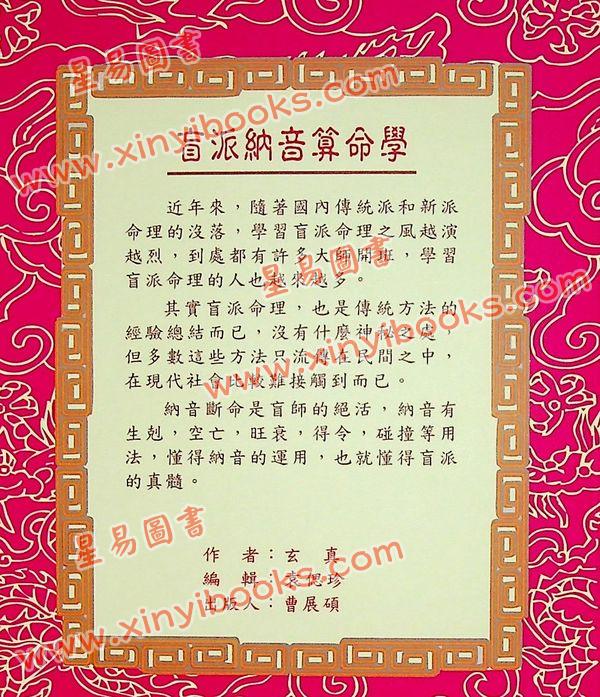 盲派納音算命學
近年來，隨著國內傳統派和新派
命理的沒落，學習盲派命理之風越演
越烈，到處都有許多大師開班，學習
盲派命理的人也越來越多。
其實盲派命理，也是傳統方法的
經驗總結而已，沒有什麼神秘之處，
但多數這些方法只流傳在民間之中，
在現代社會比較難接觸到而已。
納音斷命是盲師的絕活，納音有
生剋，空亡，旺衰，得令，碰撞等用
法，懂得納音的運用，也就懂得盲派
的真髓。
作者：玄真
編輯：袁偲珍
出版人：曹展碩
星易圖書
www.xinyibooks.com
星易圖書
www.xinyibooks.com
星易圖書
www.xinyibooks.com
星易圖書
www.xinyibooks.com